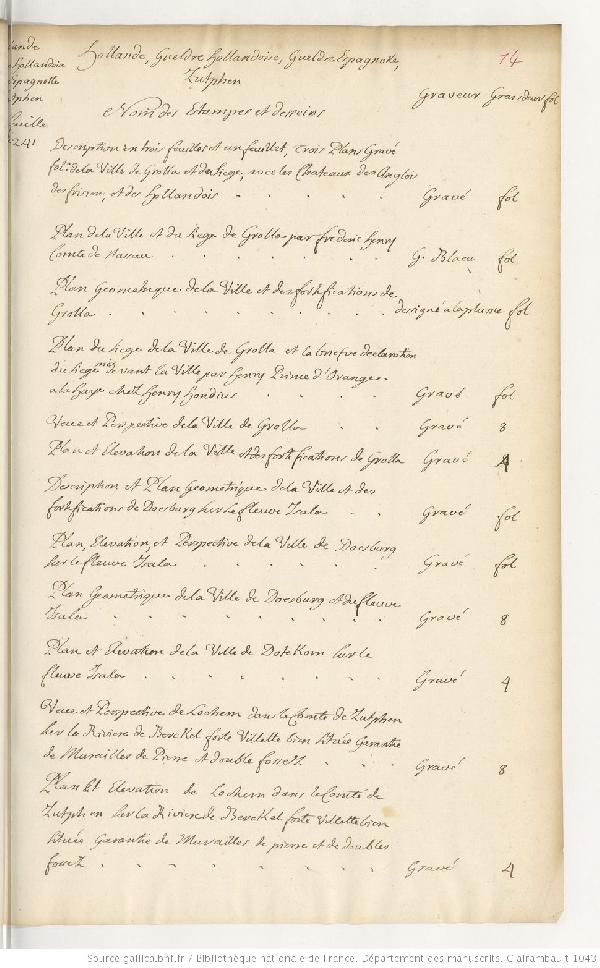 Hollande, Gueldre hollandoise, Gueldre Espagnolle,
Zutphen
74
Nom des Estampes et desseins
Graveur Grandeur fol
Description en trois feuilles et un feuillet, trois Plans Gravé
fol.o de la Ville de Grolla et du siege, avec les Chateaux des Anglois
des frisons, et des hollandois . . . . Gravé fol
Plan de la Ville et du siege de Grolla par frederic henry
Comte de Nassau . . . . . . G. Blaeu fol
Plan Geometrique de la Ville et des fortifications de
Grolla . . . . . . . . dessigné a la plume fol
Plan du siege de la Ville de Grolla et la briefve declaration
du siege mis devant la Ville par henry Prince d'Orange.
a la haye chez henry hondius . . . . Gravé fol
Veue et Perspective de la Ville de Grolla . . Gravé 8
Plan et Elevation de la Ville et des fortifications de Grolla Gravé 4
Description et Plan Geometrique de la Ville et des
fortifications de Doesburg sur le fleuve Isala . . Gravé fol
Plan, Elevation, et Perspective de la Ville de Doesburg
sur le fleuve Isala . . . . . Gravé fol
Plan Geometrique de la Ville de Doesburg et du fleuve
Isala . . . . . . . . Gravé 8
Plan et Elevation de la Ville de Dotekom sur le
fleuve Isala . . . . . . . Gravé 4
Veue et Perspective de Lochem dans le Comté de Zutphen
sur la Riviere de Berckel forte Villette bien située Garantie
de Murailles de Pierre et double fossez . . . Gravé 8
Plan et Elevation de Lochem dans le Comté de
Zutphen sur la Riviere de Berckel forte Villette bien
située Garantie de Murailles de pierre et de doubles
fossez . . . . . . . . Gravé 4
ande
hollandoise
Espagnolle
tphen
241
Source gallica.bnf.fr / Bibliothèque nationale de France. Département des manuscrits. Clairambault 1043